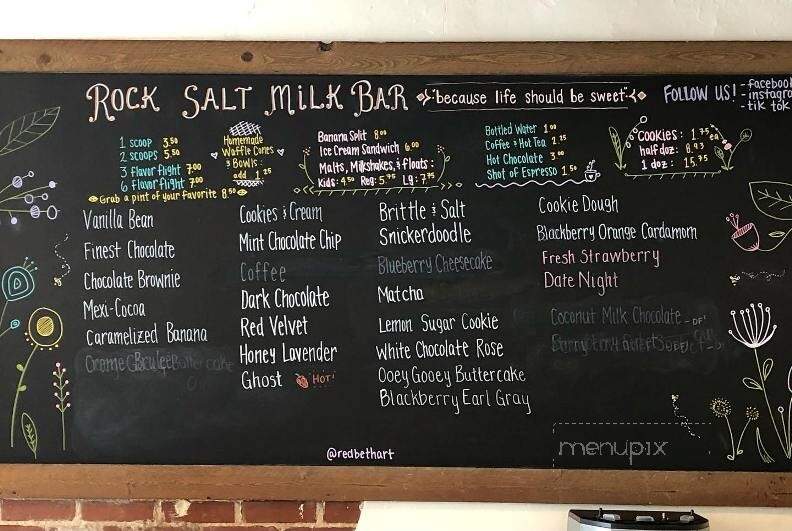 ROCK SALT MILK BAR
because life should be sweet
FOLLOW US!
- facebook
- instagra
- tik tok
1 scoop 3.50
2 scoops 5.50
3 flavor flight 7.00
6 flavor flight
Grab a pint of your favorite 8.50
Homemade
Waffle Cones
& Bowls:
add 1.25
Banana Split 8.00
Ice Cream Sandwich 6.00
Malts, Milkshakes, & floats:
Kids: 4.50 Reg: 5.75 Lg: 7.75
Bottled Water 1.00
Coffee & Hot Tea 2.25
Hot Chocolate 3.00
Shot of Espresso 1.50
Cookies: 1.75 ea
half doz: 8.93
1 doz: 15.75
Vanilla Bean
Finest Chocolate
Chocolate Brownie
Mexi-Cocoa
Caramelized Banana
Cookies & Cream
Mint Chocolate Chip
Coffee
Dark Chocolate
Red Velvet
Honey Lavender
Ghost HOT!
Brittle & Salt
Snickerdoodle
Blueberry Cheesecake
Matcha
Lemon Sugar Cookie
White Chocolate Rose
Ooey Gooey Buttercake
Blackberry Earl Gray
Cookie Dough
Blackberry Orange Cardamom
Fresh Strawberry
Date Night
Coconut Milk Chocolate - DF
@redbethart
menupix